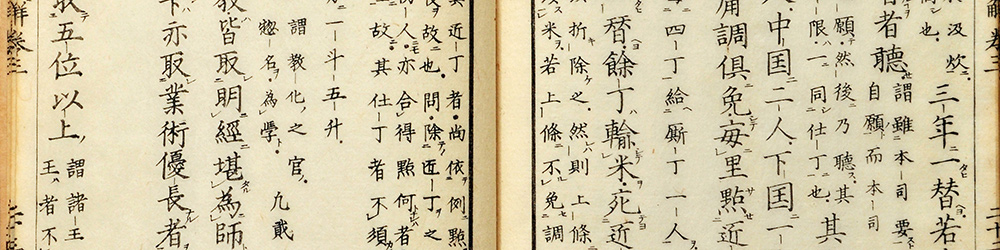 汲炊
也。
三年一替若
者聽
謂雖本司要
自願而本司
願然後乃聽其
限一同仕丁也
其
中国二人下国一
庸調俱免毎里點近
四丁給厮丁一人
替餘丁輸米宛近
折除之然則上條
米若上條不免調
近丁者尚依例點
故也問除近丁之
人亦合得點何者
故其仕丁者不須
一斗五升
謂教化之官
惣名為學
皆取明經堪為師
亦取業術優長者
五位以上
謂諸王
王者不